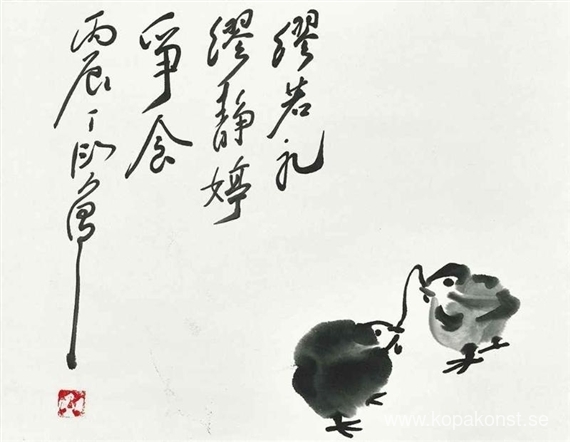 繆若礼
繆靜婷
爭食
丙辰丁衍庸
www.kopakonst.se